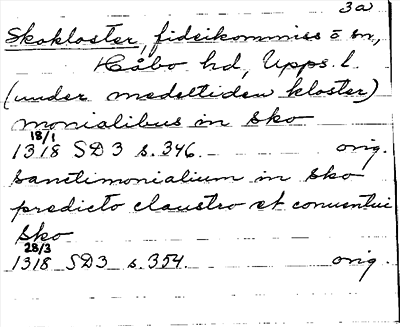 3a
Skokloster, fideikommiss o sn,
Håbo hd, Upps. l.
(under medeltiden kloster)
monialibus in Sko
18/1
1318 SD 3 s. 346. orig.
Sanctimonialium in Sko
predicto claustro et conuentui
Sko
28/3
1318 SD3 s. 354. orig.